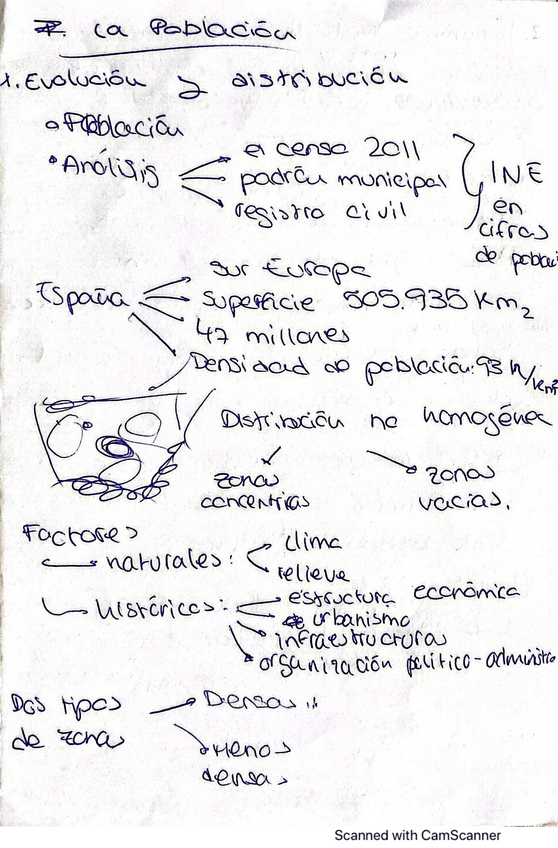 7. La Población
1. Evolución y distribución
• Población
• Análisis
el censo 2011
padrón municipal
registro civil
INE
en
cifras
de poblaci
España
sur Europa
superficie 505.935 Km2
47 millones
Densidad de población: 93 h/km²
Distribución no homogénea
zonas
concentras
zonas
vacías.
Factores
naturales:
clima
relieve
históricos:
estructura económica
urbanismo
infraestructuras
organización político-administra
Dos tipos
de zonas
Densas
Menos
densas
Scanned with CamScanner